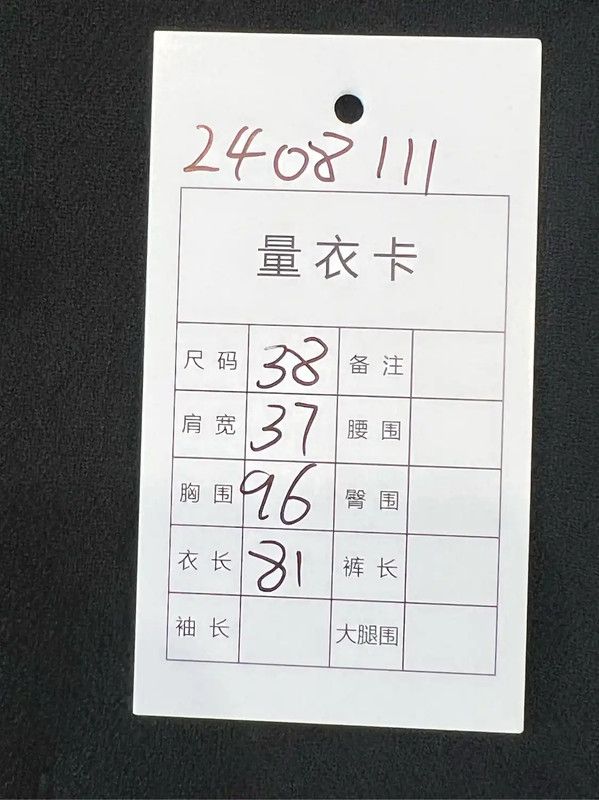 2408111
量衣卡
尺码 38 备注
肩宽 37 腰围
胸围 96 臀围
衣长 81 裤长
袖长 大腿围